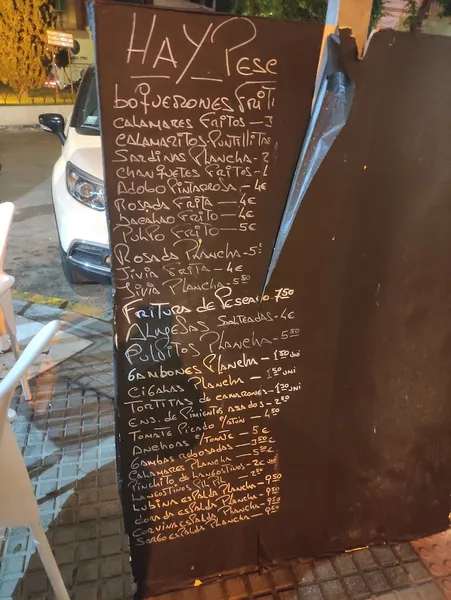 HAY PESC
BOQUERONES FRIT
CALAMARES FRITOS — 3
CALAMARITOS PUNTILLITAS
SARDINAS PLANCHA — 2
CHANQUETES FRITOS —
ADOBO PINTARROSA — 4€
ROSADA FRITA — 4€
BACALAO FRITO — 4€
PULPO FRITO — 5€
ROSADA PLANCHA — 5
JIVIA FRITA — 4€
JIVIA PLANCHA — 5'50
FRITURA DE PESCADO 7'50
ALMEJAS SALTEADAS — 4€
PULPITOS PLANCHA — 5'50
GAMBONES PLANCHA — 1'50 UNI
CIGALAS PLANCHA — 1'50 UNI
TORTITAS DE CAMARONES — 1'30 UNI
ENS. DE PIMIENTOS ASADOS — 2'50
TOMATE PICADO C/ATUN — 4'50
ANCHOAS C/TOMATE — 5€
GAMBAS REBOSADAS — 3'50€
CALAMARES PLANCHA — 5'50€
PINCHITO DE LANGOSTINOS — 2€ UNI
LANGOSTINOS PIL PIL —
LUBINA ESPALDA PLANCHA — 9'50
DORADA ESPALDA PLANCHA — 9'50
CORVINA ESPALDA PLANCHA — 9'50
SARGO ESPALDA PLANCHA — 9'50